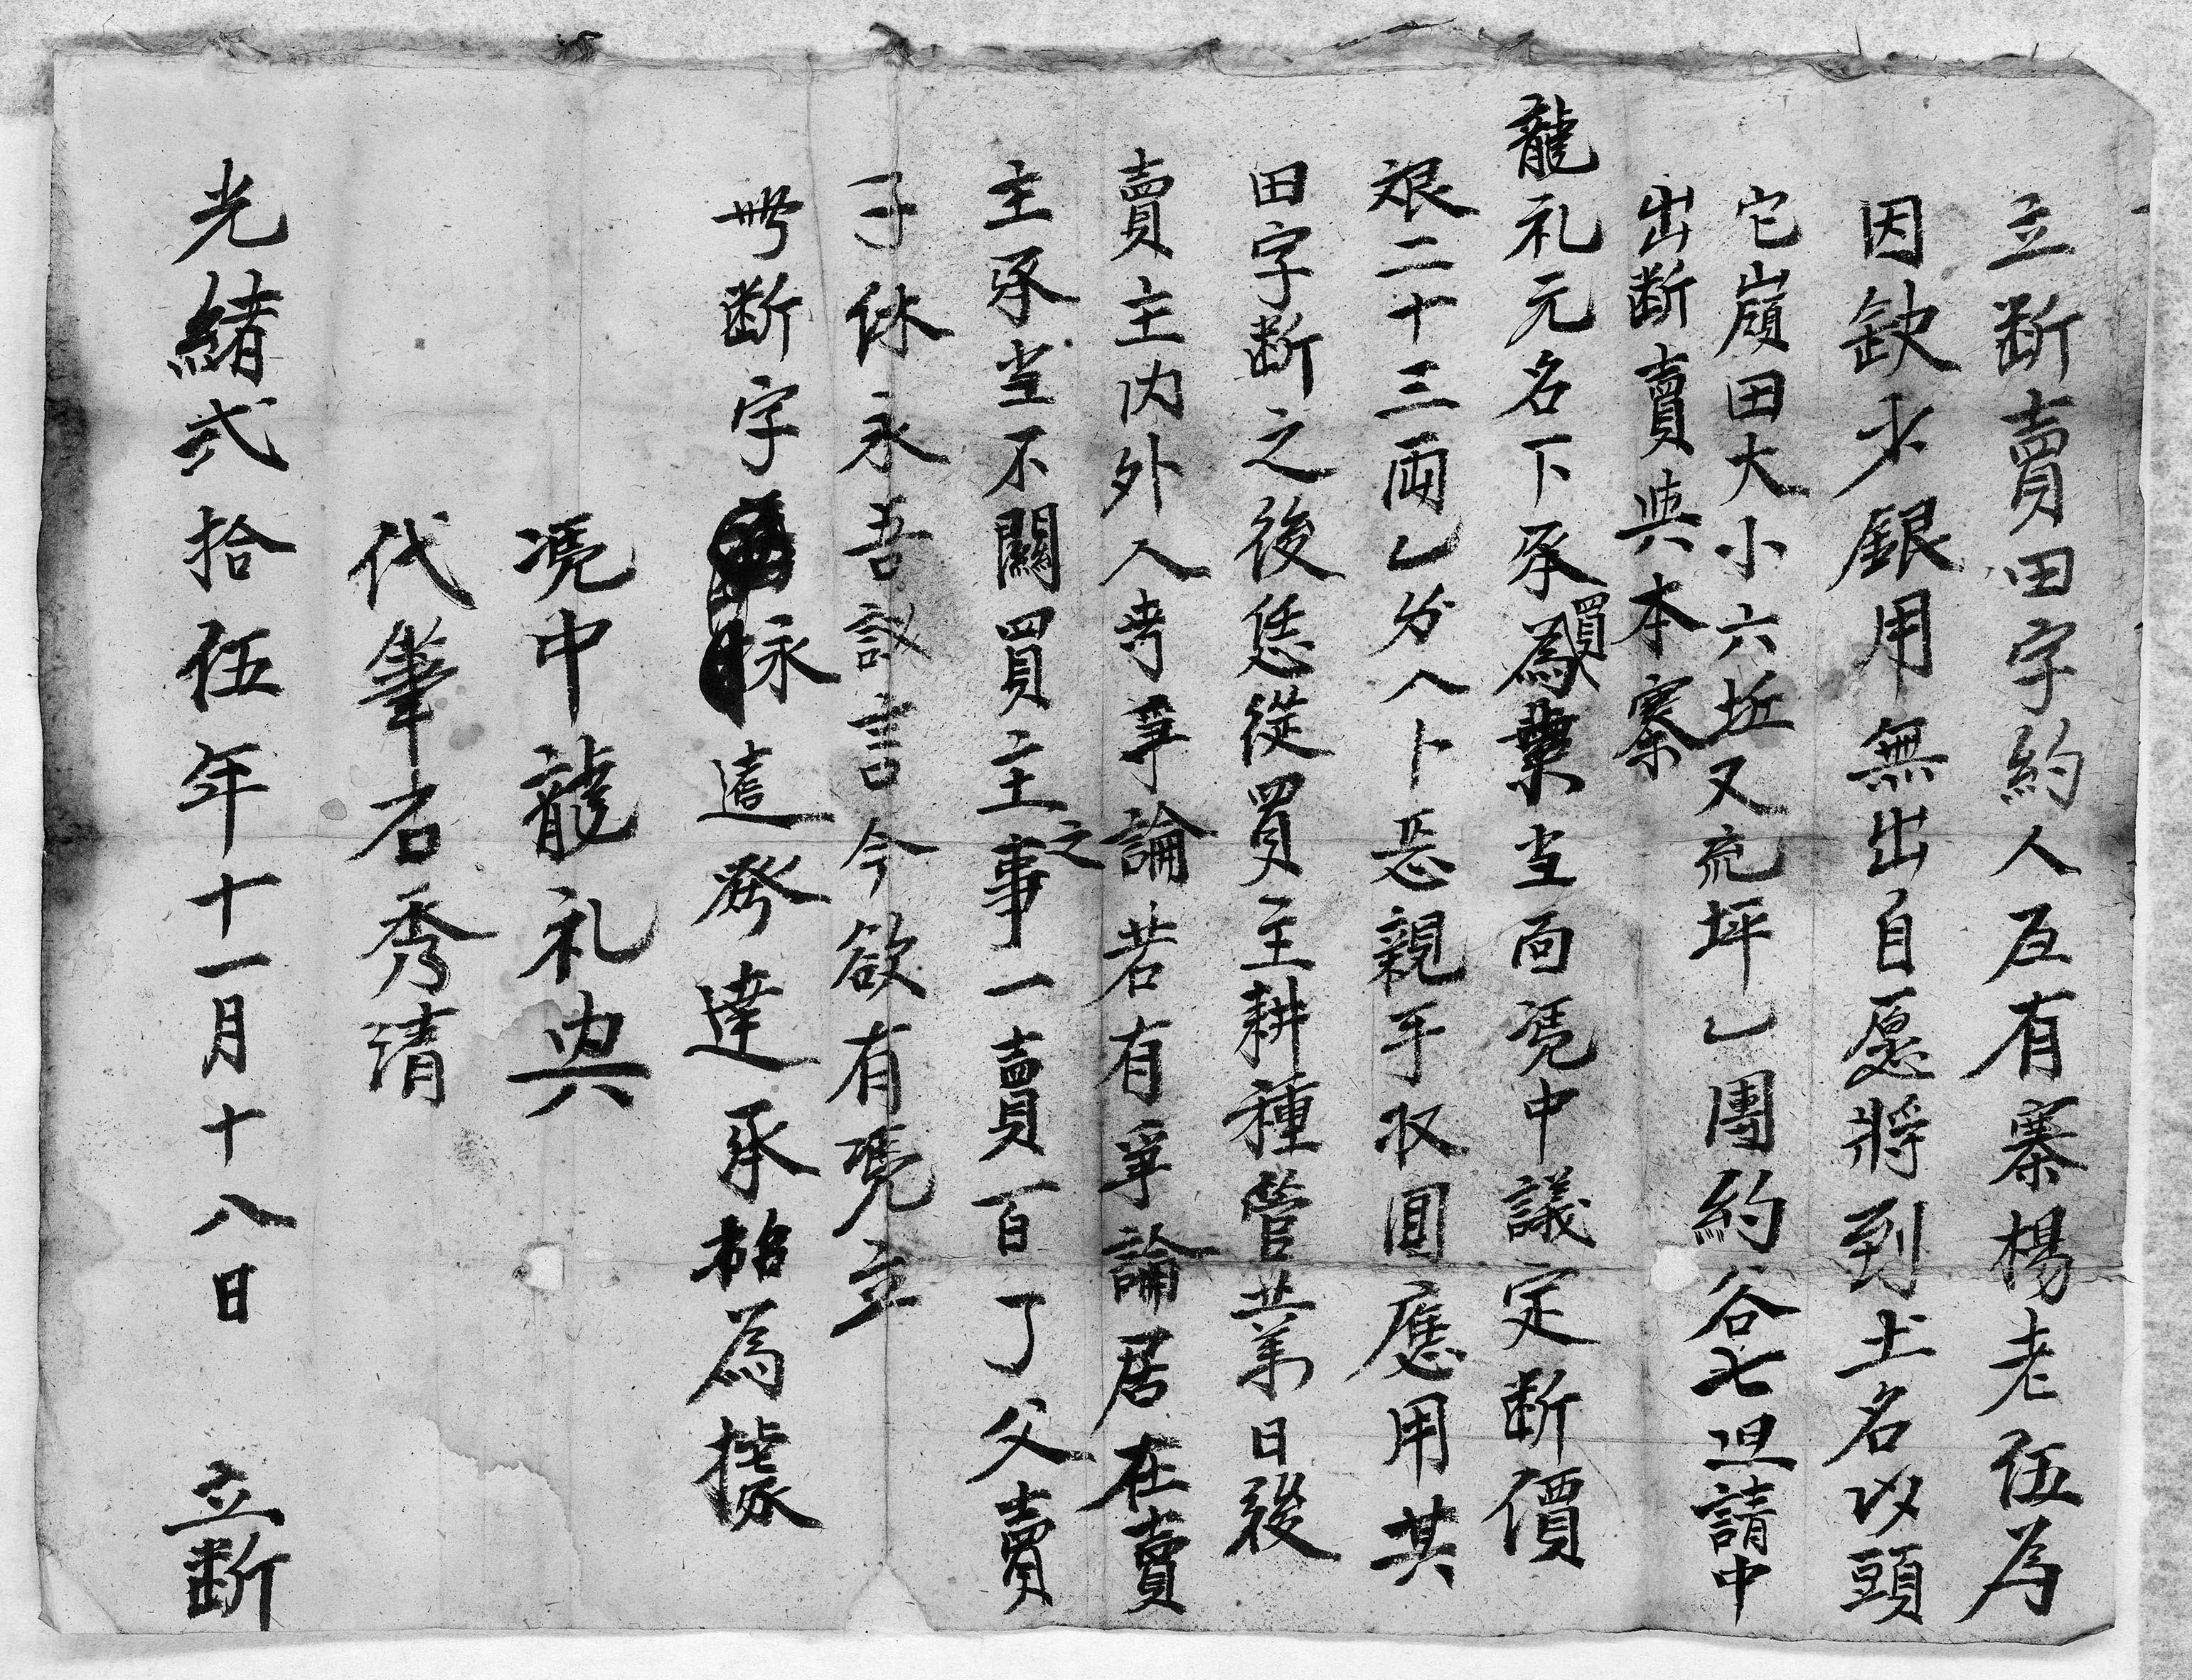 立断賣田字約人瓦有寨楊老伍為
因缺少銀用無出自愿將到土名凶頭
它嶺田大小六坵又㐬坪乙團約谷七担請中
出断賣與本寨
龍礼元名下承買為業当面凴中議定断價
艮二十三両乙分八卜恶親手収囬應用其
田字断之後恁從買主耕種管業日後
賣主内外人考爭論若有爭論居在賣
主承当不關買主之事一賣百了父賣
子休永吾議言今欲有凴立
断字永遠發達承招為據
凴中龍礼典
代筆石秀清
光緒弍拾伍年十一月十八日 立断